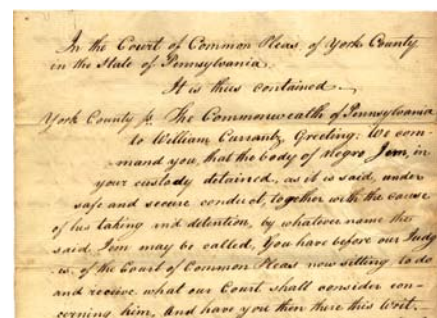 In the Court of Common Pleas, of York County
in the State of Pennsylvania
It is thus contained.
York County ss. The Commonwealth of Pennsylvania
to William Currantz, Greeting: We com-
mand you, that the body of negro Jem, in
your custody detained, as it is said, under
safe and secure conduct, together with the cause
of his taking and detention, by whatever name the
said Jem may be called, You have before our Judg
es, of the Court of Common Pleas now sitting to do
and receive what our Court shall consider con-
cerning him, And have you then there this Writ.